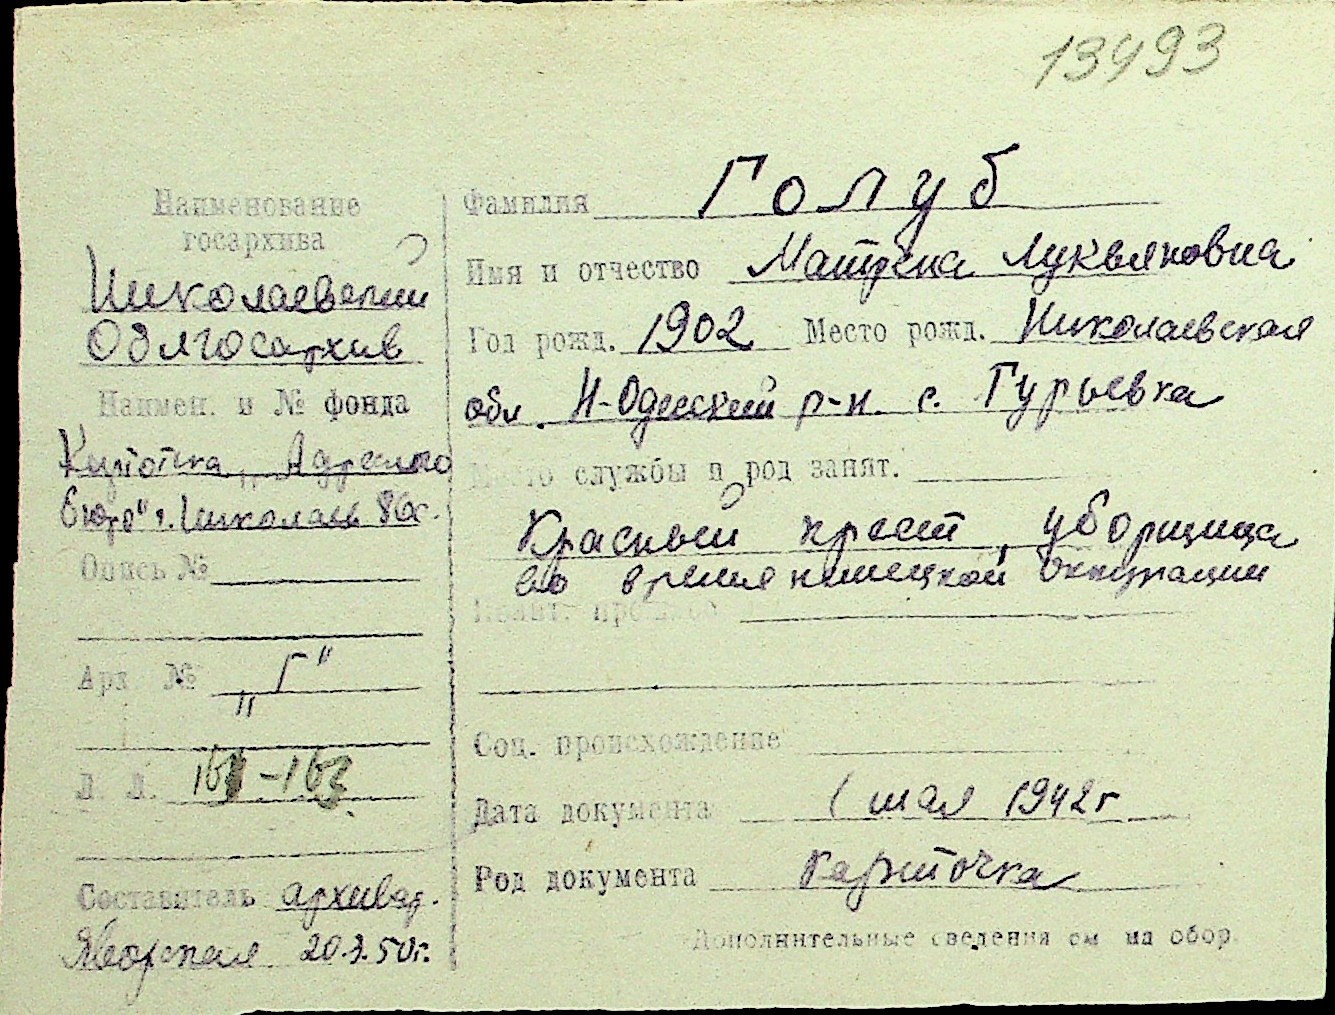 13493
Наименование
госархива
Николаевский
Облгосархив
Наимен. и № фонда
Картотека „Адресного
бюро" г. Николаев
Опись №
Арх №
„Г"
Л. Л. 161-163
Составитель архивар.
Яворская 20.3.50г.
Фамилия Голуб
Имя и отчество Матрена Лукьяновна
Год рожд. 1902 Место рожд. Николаевская
обл. Н-Одесский р-н. с. Гурьевка
Место службы и род занят.
Красный крест, уборщица
во время немецкой оккупации
Соц. происхождение
Дата документа 1 мая 1942г
Род документа карточка
Дополнительные сведения см на обор.